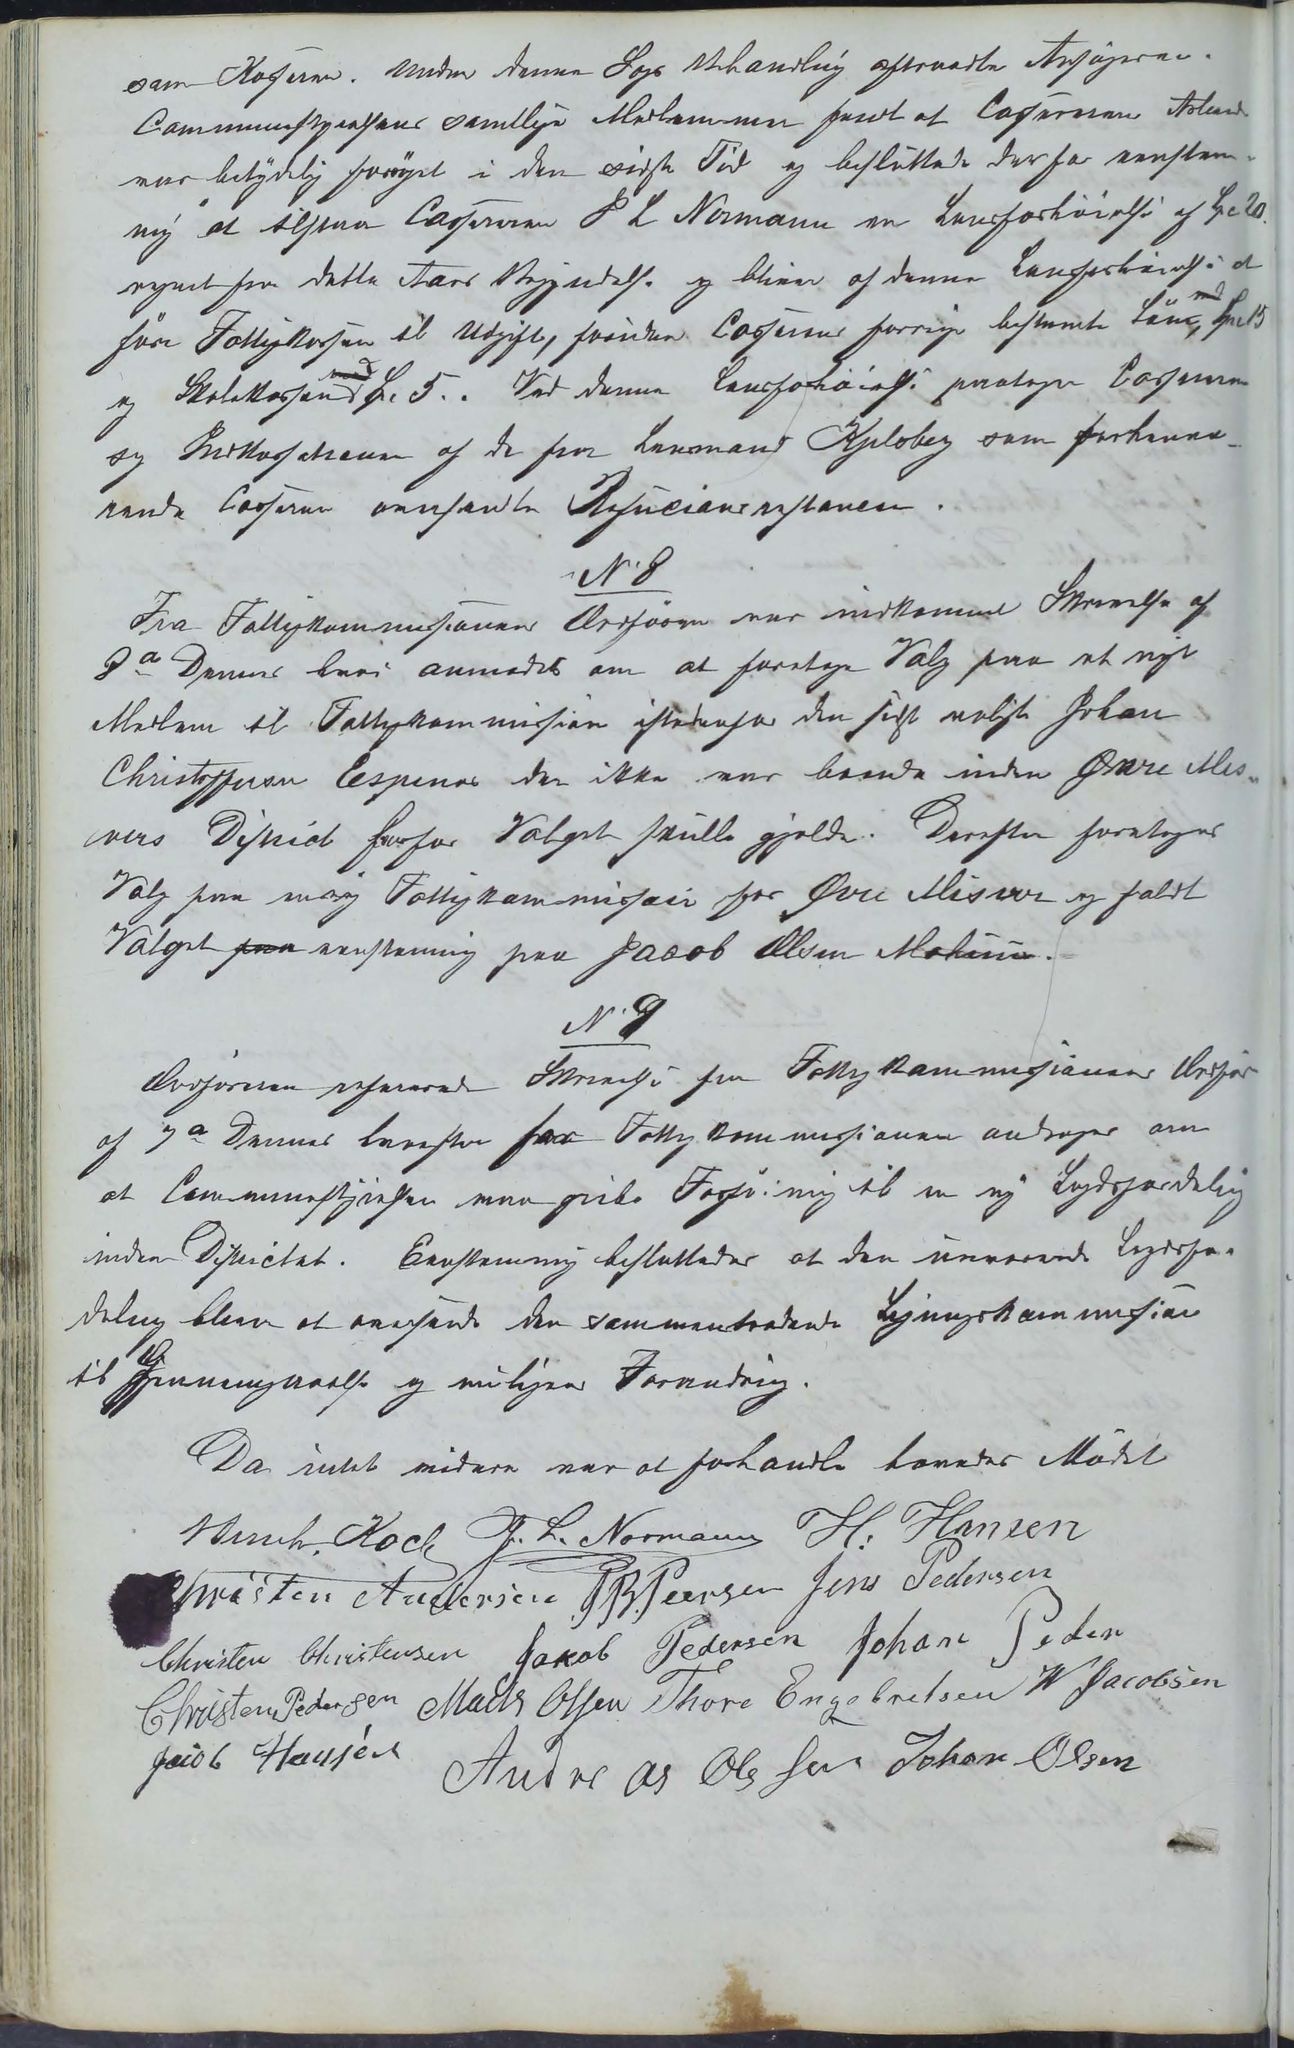 som Kasserer. Under denne Sags Behandling aftraadte Ansøgeren.
Communestyrelsens samtlige Medlemmer fandt at Cassererens Arbeide
var betydelig forøget i den sidste Tid og besluttede derfor eenstem-
mig at tilstaa Cassereren J L Normann en Lønsforhøielse af Spd 20.
regnet fra dette Aars Begyndelse og bliver af denne Lønsforhøielse at
føre Fattigkassen til Udgift, foruden Casserens forrige bestemte Løn, med Spd 15
og Skolekassen med Spd. 5. Ved denne Lønsforhøielse paatager Cassereren
sig Indkassationen af de fra Lensmand Kjelsberg som forhenvæ-
rende Casserer oversendte Restancer.
No 8
Fra Fattigkommissionens Ordfører var indkommet Skrivelse af
8a Dennes hvori anmodes om at foretage Valg paa et nyt
Medlem til Fattigkommission istedenfor den sidst valgte Johan
Christoffersen Espenes der ikke var boende inden Øvre Mis-
vers District hvorfor Valget skulle gjelde. Derefter foretoges
Valg paa en ny Fattigkommissair for Øvre Misvær og faldt
Valget paa eenstemmig paa Jacob Olsen
No 9
Ordføreren refererede Skrivelse fra Fattigkommissionens Ordfører
af 7a Dennes hvorefter for Fattigkommissionen andrages om
at Communestyrelsen maa gribe Forføining til en ny Lægdsfordeling
inden Districtet. Eenstemmig besluttedes at den nuværende Lægdsfor-
deling bliver at oversende den sammentrædende Ligningskommission
til Gjennemgaaelse og mulig Forandring.
Da intet videre var at forhandle hævedes Mødet
Koch J. L. Normann H. Hansen
Christen Andersen P. B. Peersen Jens Pedersen
Christen Christensen Jakob Pedersen Johan Peder
Christen Pedersen Mads Olsen Thore Engebretsen W Jacobsen
Jacob Hansen Andreas Olssen Johan Olsen